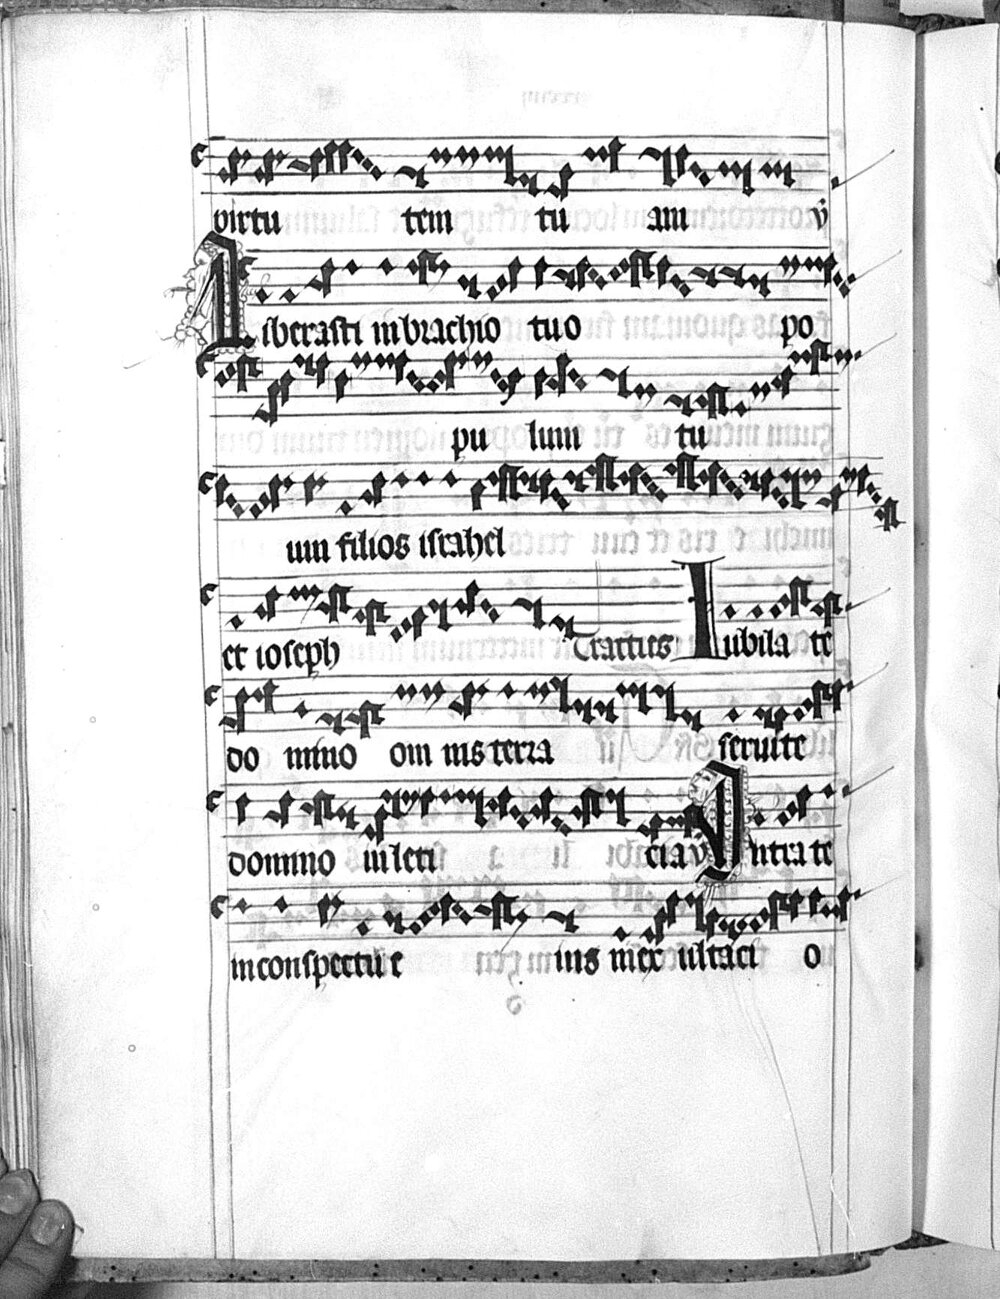 virtu tem tu am ꝟ
Liberasti in brachio tuo po
pu lum tu
um filios israhel
et ioseph Tractus Iubila te
do mino om nis terra seruite
domino in leti cia ꝟ Intra te
in conspectu e ius in ex ultaci o